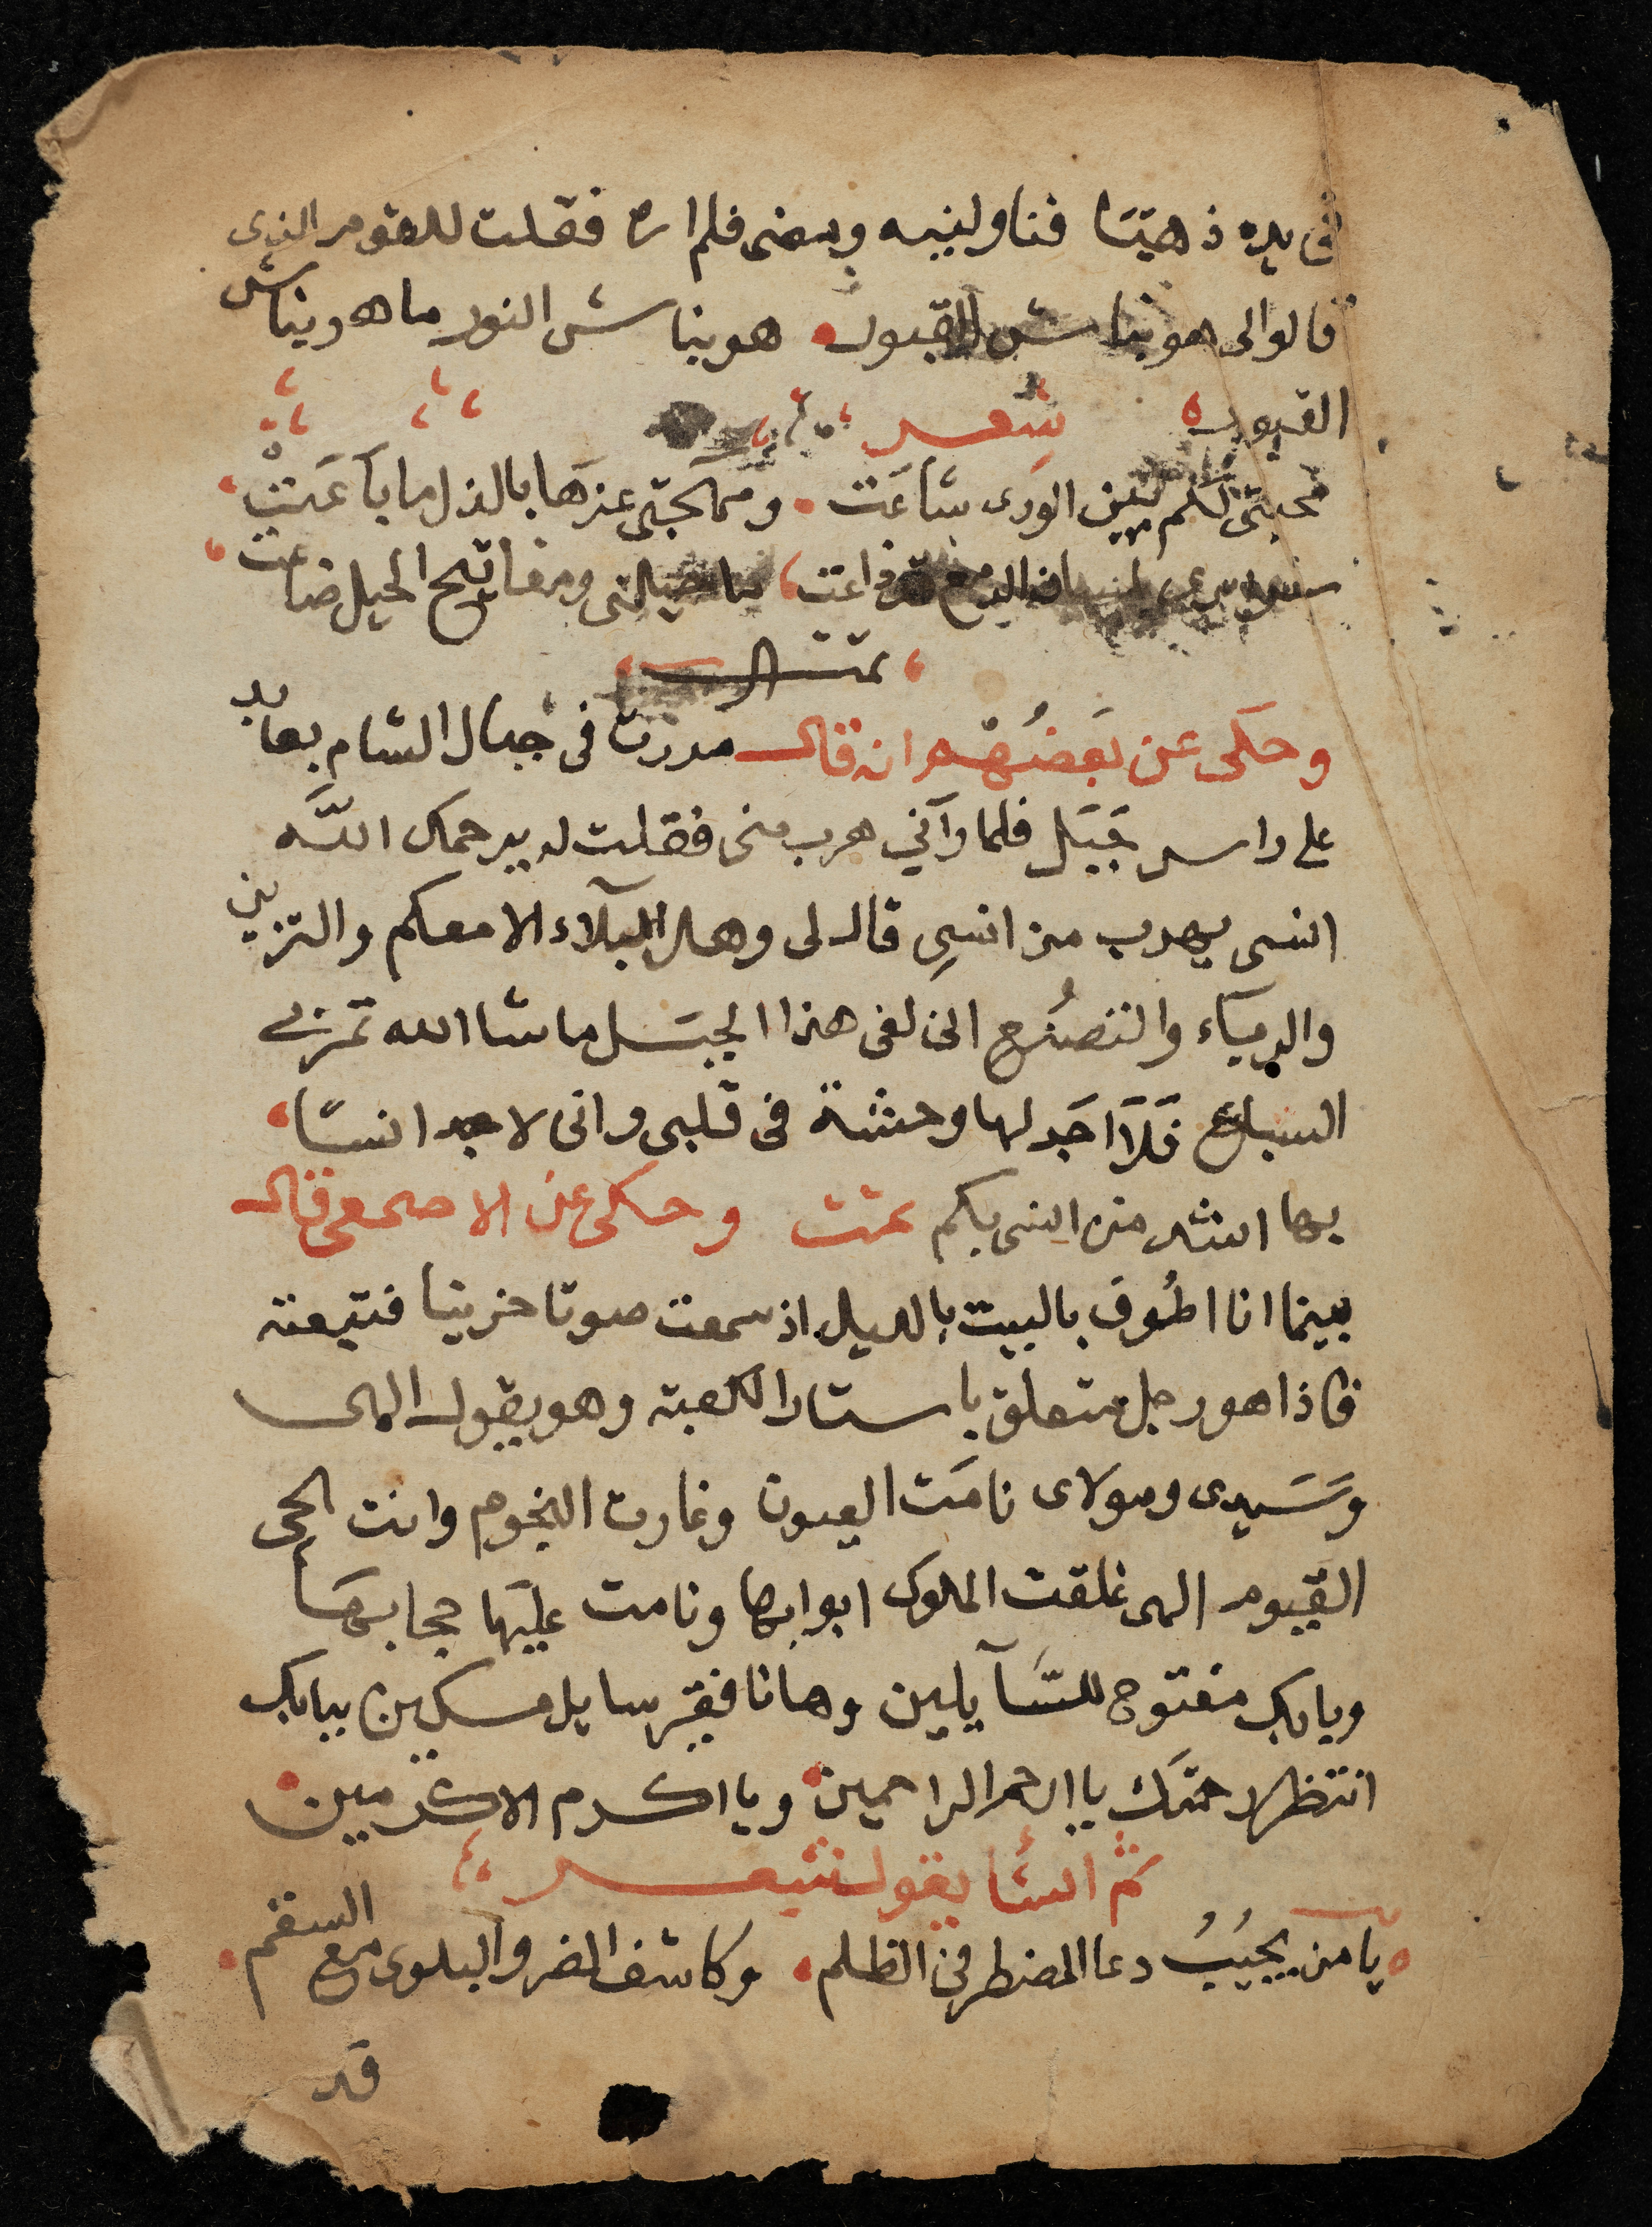 في يده ذهبًا فناولنيه ومضى فلم اره فقلت للقوم الذى
قالوا لى هو نباش القبور هو نباش النور ما هو نباش
القبور شعر
محبتى لكم بين الورى شاعت ومهجتى عزها بالذل ما باعت
الدمع قد ذاعت ما حيلتى ومفاتيح الحيل ضاعت
تمت
وحكى عن بعضهم انه قال مررت فى جبال الشام بعابد
على راس جبل فلما رآني هرب منى فقلت له يرحمك الله
انسى يهرب من انسى قال لى وهل البلاء الا معكم والتزين
والرياء والتصنع انى لفى هذا الجبل ما شا الله تمر بى
السباع فلا اجد لها وحشة فى قلبى وانى لاجد انسًا
بها اشد من انسى بكم تمت وحكى عن الاصمعى قال
بينما انا اطوف بالبيت بالليل اذ سمعت صوتا حزينا فتبعته
فاذا هو رجل متعلق باستار الكعبة وهو يقول الهى
وسيدى ومولاى نامت العيون وغارت النجوم وانت الحى
القيوم الهى غلقت الملوك ابوابها ونامت عليها حجابها
وبابك مفتوح للسآيلين وها انا فقير سايل مسكين ببابك
انتظر رحمتك يا ارحم الراحمين ويا اكرم الاكرمين
ثم انشا يقول شعر
يا من يجيبُ دعا المضطر فى الظلم وكاشف الضر والبلوى مع السقم
قد